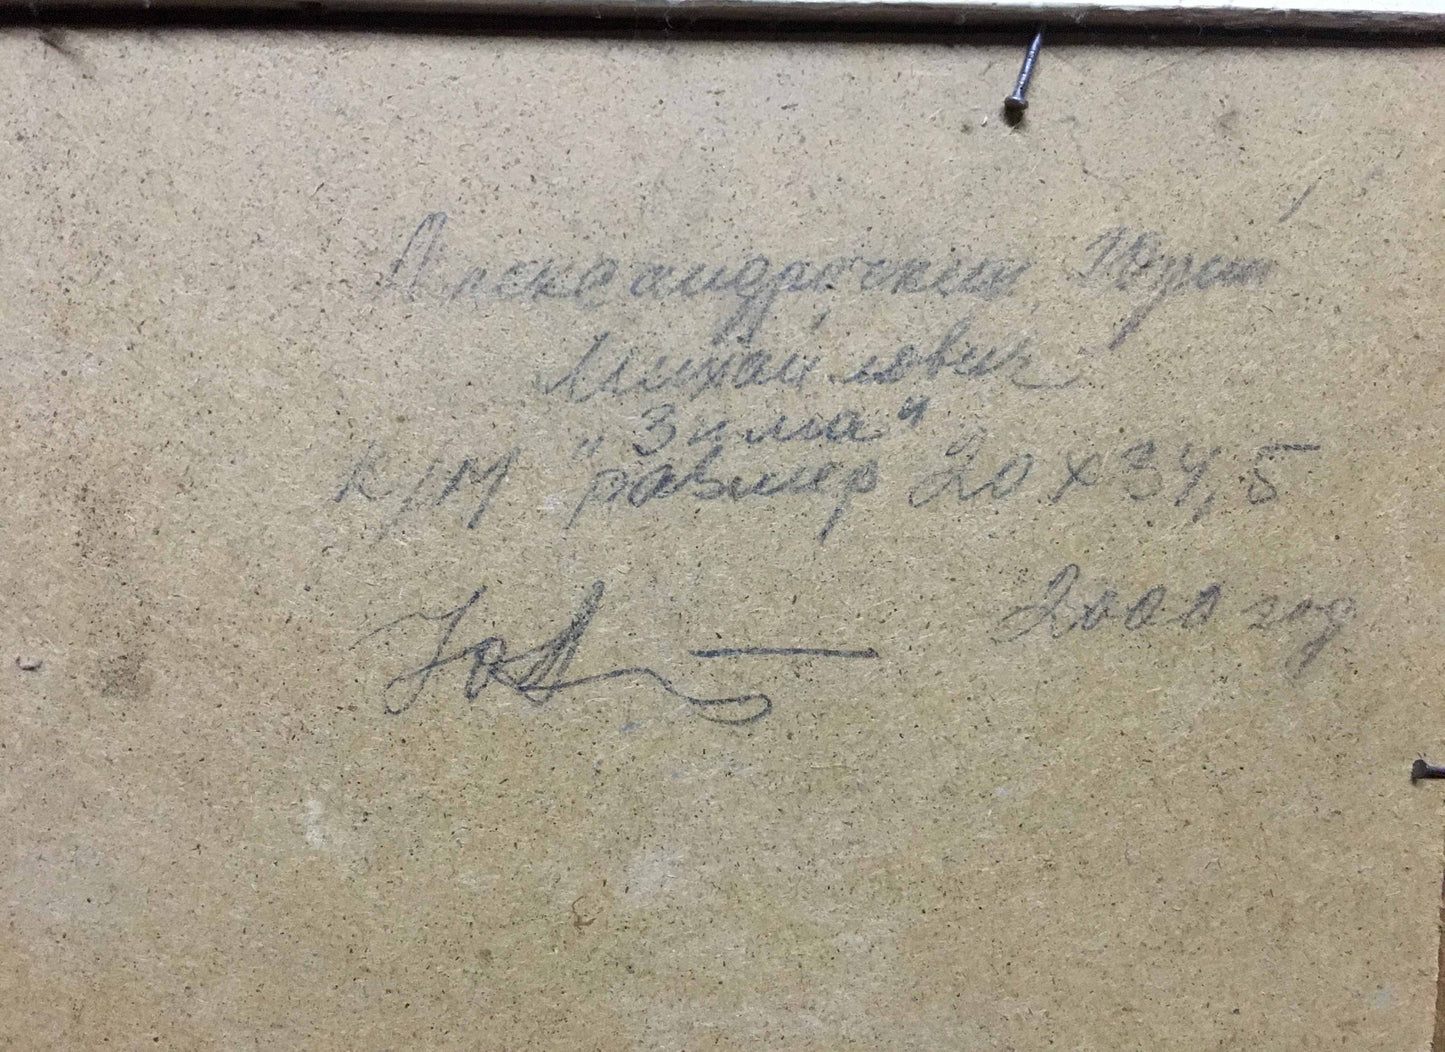 Александровский Юрий
Михайлович
"Зима"
к/м размер 20 х 34,5
2000 год